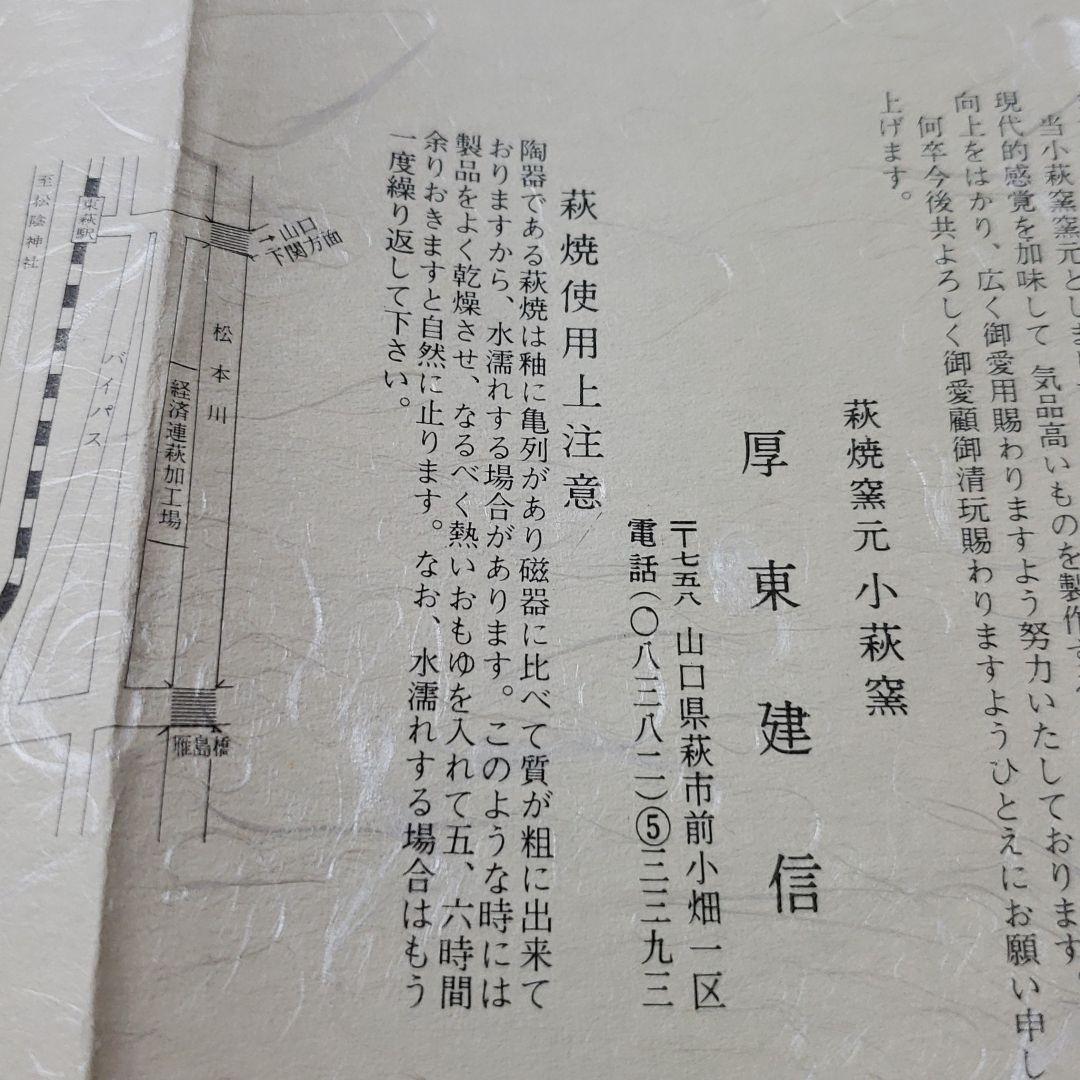 当小萩窯窯元としまして
現代的感覚を加味して 気品高いものを製作す
向上をはかり、広く御愛用賜わりますよう努力いたしております。
何卒今後共よろしく御愛顧御清玩賜わりますようひとえにお願い申し
上げます。
萩焼窯元 小萩窯
厚東建信
〒七五八 山口県萩市前小畑一区
電話(〇八三八二)⑤三三九三
萩焼使用上注意
陶器である萩焼は釉に亀列があり磁器に比べて質が粗に出来て
おりますから、水濡れする場合があります。このような時には
製品をよく乾燥させ、なるべく熱いおもゆを入れて五、六時間
余りおきますと自然に止ります。なお、水濡れする場合はもう
一度繰り返して下さい。
→山口
下関方面
松本川
経済連萩加工場
雁島橋
バイパス
東萩駅
至松陰神社